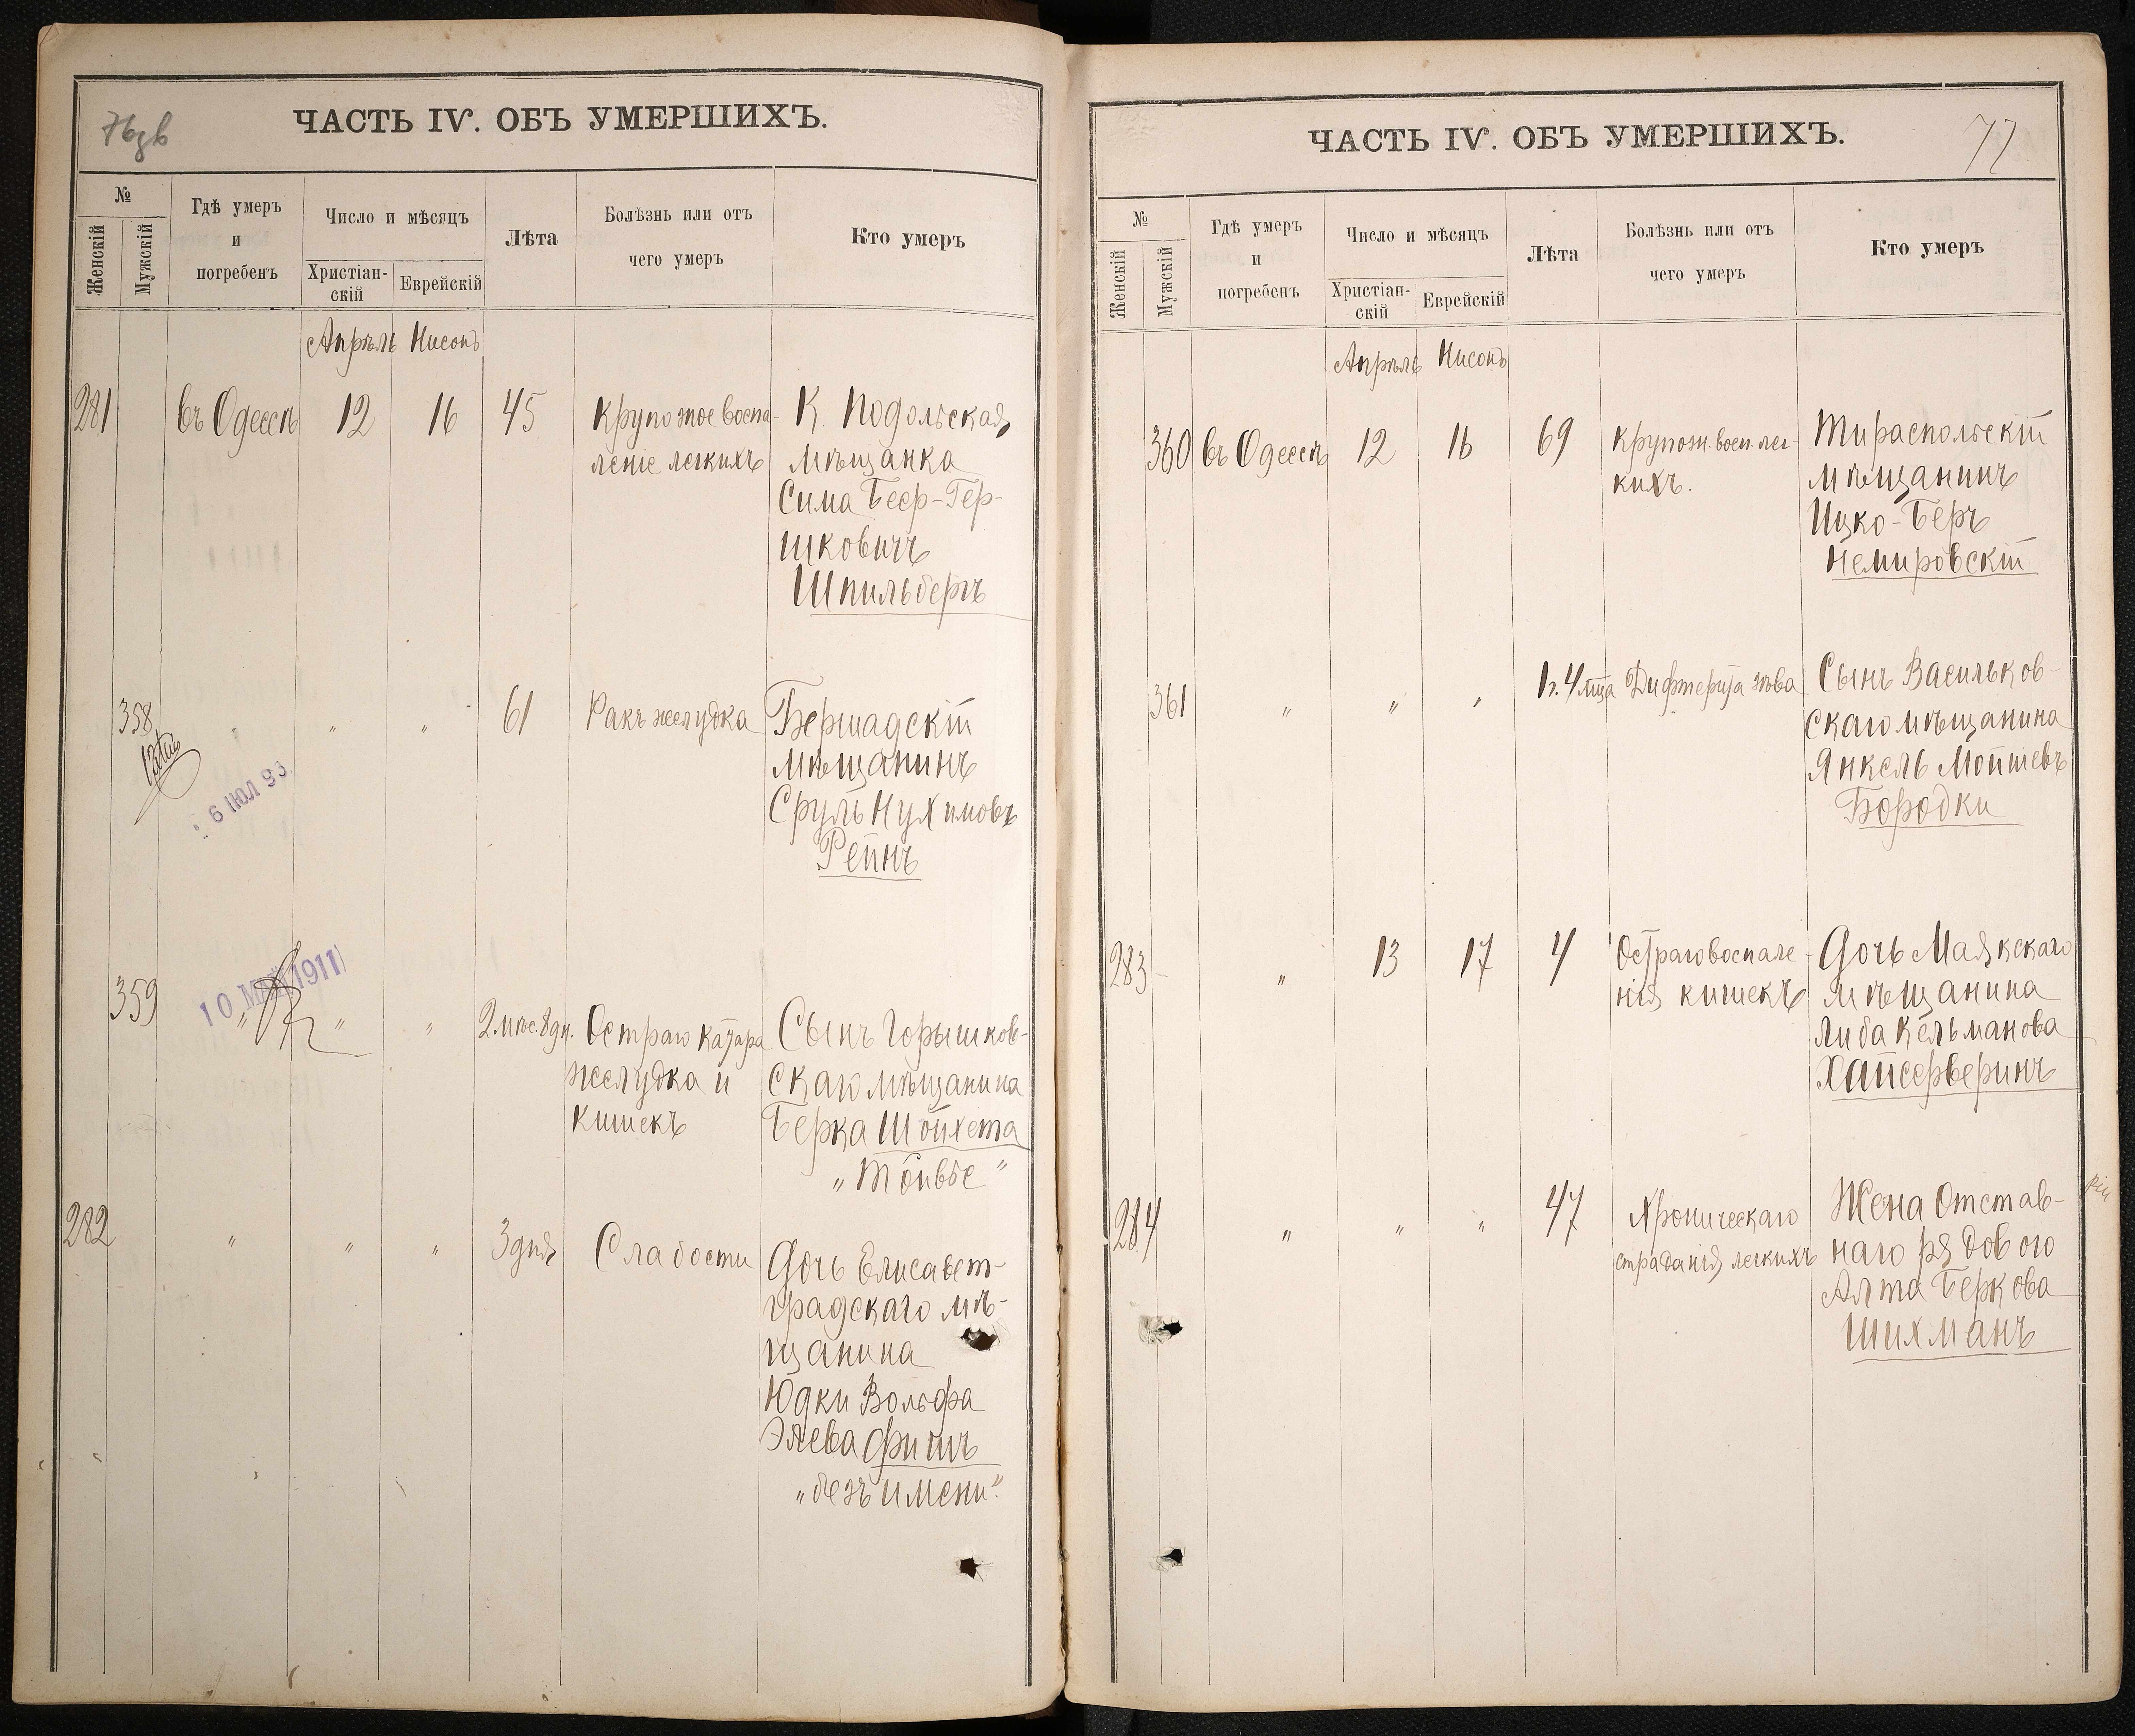 76 зв
ЧАСТЬ IV. ОБЪ УМЕРШИХЪ.
№
Женскій
Мужскій
Гдѣ умеръ
и
погребенъ
Число и мѣсяцъ
Христіан-
скій
Еврейскій
Лѣта
Болѣзнь или отъ
чего умеръ
Кто умеръ
Апрѣль Нисонъ
281 въ Одессѣ 12 16 45 Крупозное воспа- К. Подольская
леніе легкихъ мѣщанка
Сима Беер-Гер-
шковичъ
Шпильбергъ
358 " " " 61 Ракъ желудка Бершадскій
мѣщанинъ
Сруль Нухимовъ
Рейнъ
6 ІЮЛ 93
10 МАЙ 1911
359 " " " 2 мѣс. 8 дн. Остраго катара Сынъ Горышков-
желудка и скаго мѣщанина
кишекъ Берка Шойхета
"Тойвье"
282 " " " 3 дня Слабости Дочь Елисавет-
градскаго мѣ-
щанина
Юдки Вольфа
Элева Фишъ
"безъ имени"
ЧАСТЬ IV. ОБЪ УМЕРШИХЪ.
77
№
Женскій
Мужскій
Гдѣ умеръ
и
погребенъ
Число и мѣсяцъ
Христіан-
скій
Еврейскій
Лѣта
Болѣзнь или отъ
чего умеръ
Кто умеръ
Апрѣль Нисонъ
360 въ Одессѣ 12 16 69 Крупозн. восп. лег- Тираспольскій
кихъ. мѣщанинъ
Ицко-Беръ
Немировскій
361 " " " 1 г. 4 мца Дифтерита зѣва Сынъ Васильков-
скаго мѣщанина
Янкель Мойшевъ
Бородки
283 " 13 17 4 Остраго воспале- Дочь Маякскаго
нія кишекъ мѣщанина
Либа Кельманова
Хайсерверинъ
284 " " " 47 Хроническаго Жена Отстав-
страданія легкихъ наго рядового
Алта Беркова
Шихманъ